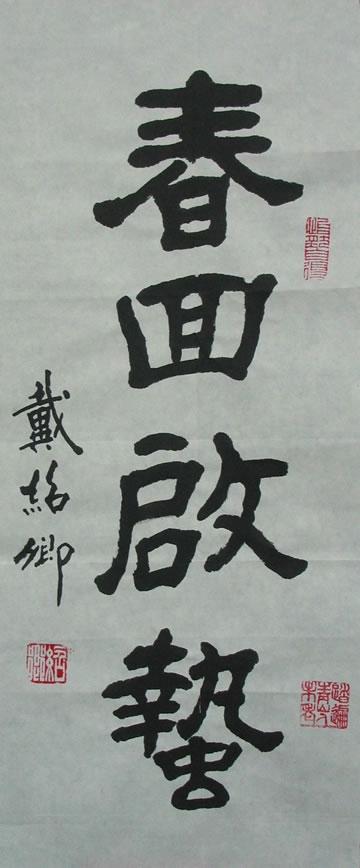 春回啟蟄
戴紹卿